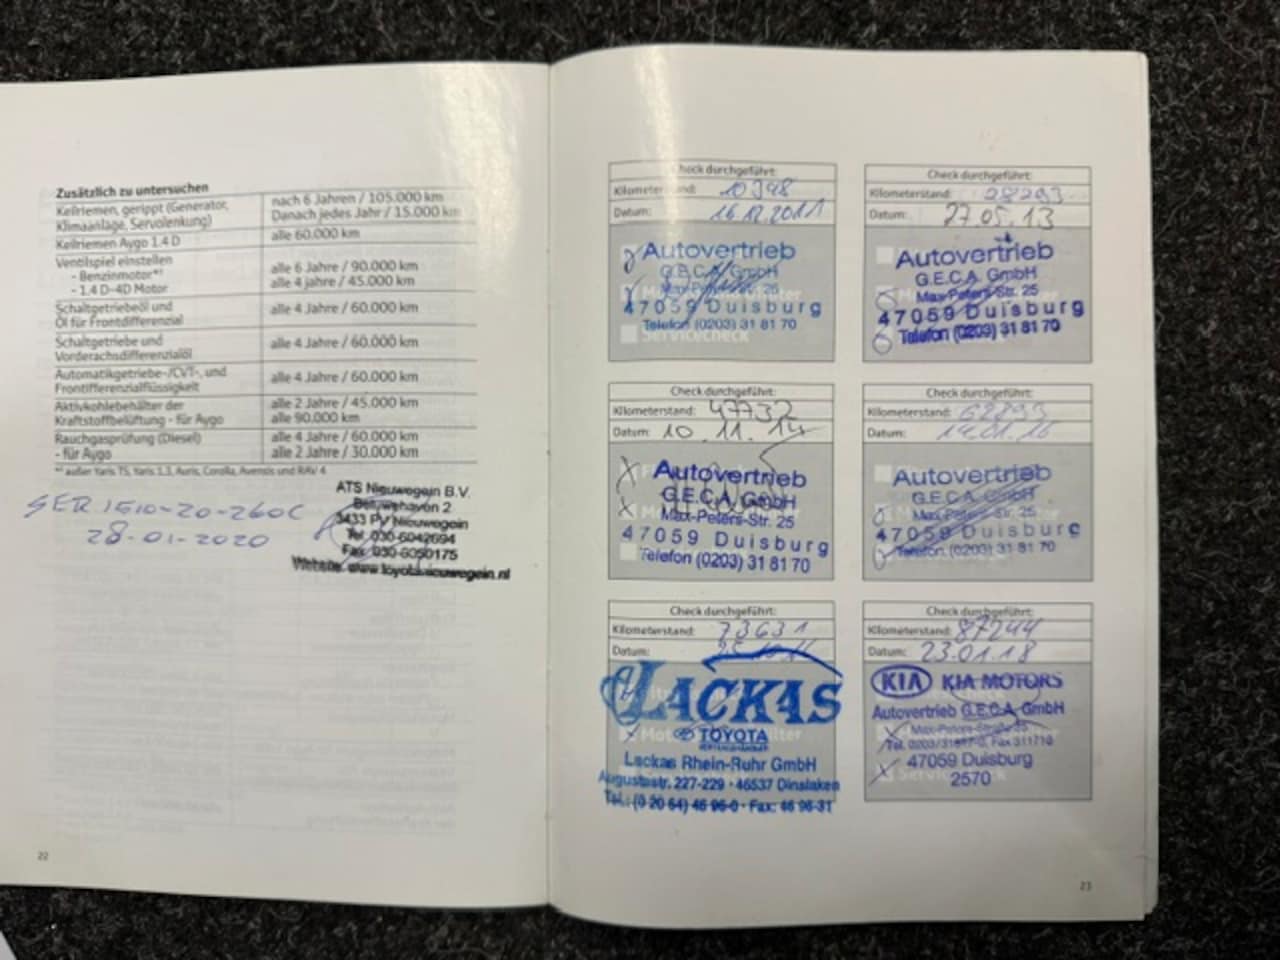 Zusätzlich zu untersuchen
Keilriemen, gerippt (Generator, Klimaanlage, Servolenkung)
nach 6 Jahren / 105.000 km
Danach jedes Jahr / 15.000 km
Keilriemen Aygo 1.4 D
alle 60.000 km
Ventilspiel einstellen
- Benzinmotor*¹
alle 6 Jahre / 90.000 km
- 1.4 D-4D Motor
alle 4 Jahre / 45.000 km
Schaltgetriebeöl und
Öl für Frontdifferenzial
alle 4 Jahre / 60.000 km
Schaltgetriebe und
Vorderachsdifferenzialöl
alle 4 Jahre / 60.000 km
Automatikgetriebe-/CVT-, und
Frontdifferenzialflüssigkeit
alle 4 Jahre / 60.000 km
Aktivkohlebehälter der
Kraftstoffbelüftung - für Aygo
alle 2 Jahre / 45.000 km
alle 90.000 km
Rauchgasprüfung (Diesel)
- für Aygo
alle 4 Jahre / 60.000 km
alle 2 Jahre / 30.000 km
*¹ außer Yaris TS, Yaris 1.3, Auris, Corolla, Avensis und RAV 4
28-01-2020
ATS Nieuwegein B.V.
2
3433 PV Nieuwegein
Tel. 030-6042694
Fax 030-6050175
Website: www.toyotanieuwegein.nl
22
Check durchgeführt:
Kilometerstand: 10398
Datum: 16.12.2011
Autovertrieb
G.E.C.A. GmbH
Max-Peters-Str. 25
47059 Duisburg
Telefon (0203) 31 81 70
Servicecheck
Check durchgeführt:
Kilometerstand: 28293
Datum: 27.05.13
Autovertrieb
G.E.C.A. GmbH
Max-Peters-Str. 25
47059 Duisburg
Telefon (0203) 31 81 70
Check durchgeführt:
Kilometerstand: 47732
Datum: 10.11.14
Autovertrieb
G.E.C.A. GmbH
Max-Peters-Str. 25
47059 Duisburg
Telefon (0203) 31 81 70
Check durchgeführt:
Kilometerstand:
Datum:
Autovertrieb
G.E.C.A. GmbH
Max-Peters-Str. 25
47059 Duisburg
Telefon (0203) 31 81 70
Check durchgeführt:
Kilometerstand: 73631
Datum:
LACKAS
TOYOTA
Lackas Rhein-Ruhr GmbH
Augustastr. 227-229 · 46537 Dinslaken
Tel.: (0 20 64) 46 96-0 · Fax: 46 96-31
Check durchgeführt:
Kilometerstand: 87244
Datum: 23.01.18
KIA KIA MOTORS
Autovertrieb G.E.C.A. GmbH
Max-Peters-Straße 25
47059 Duisburg
2570
23